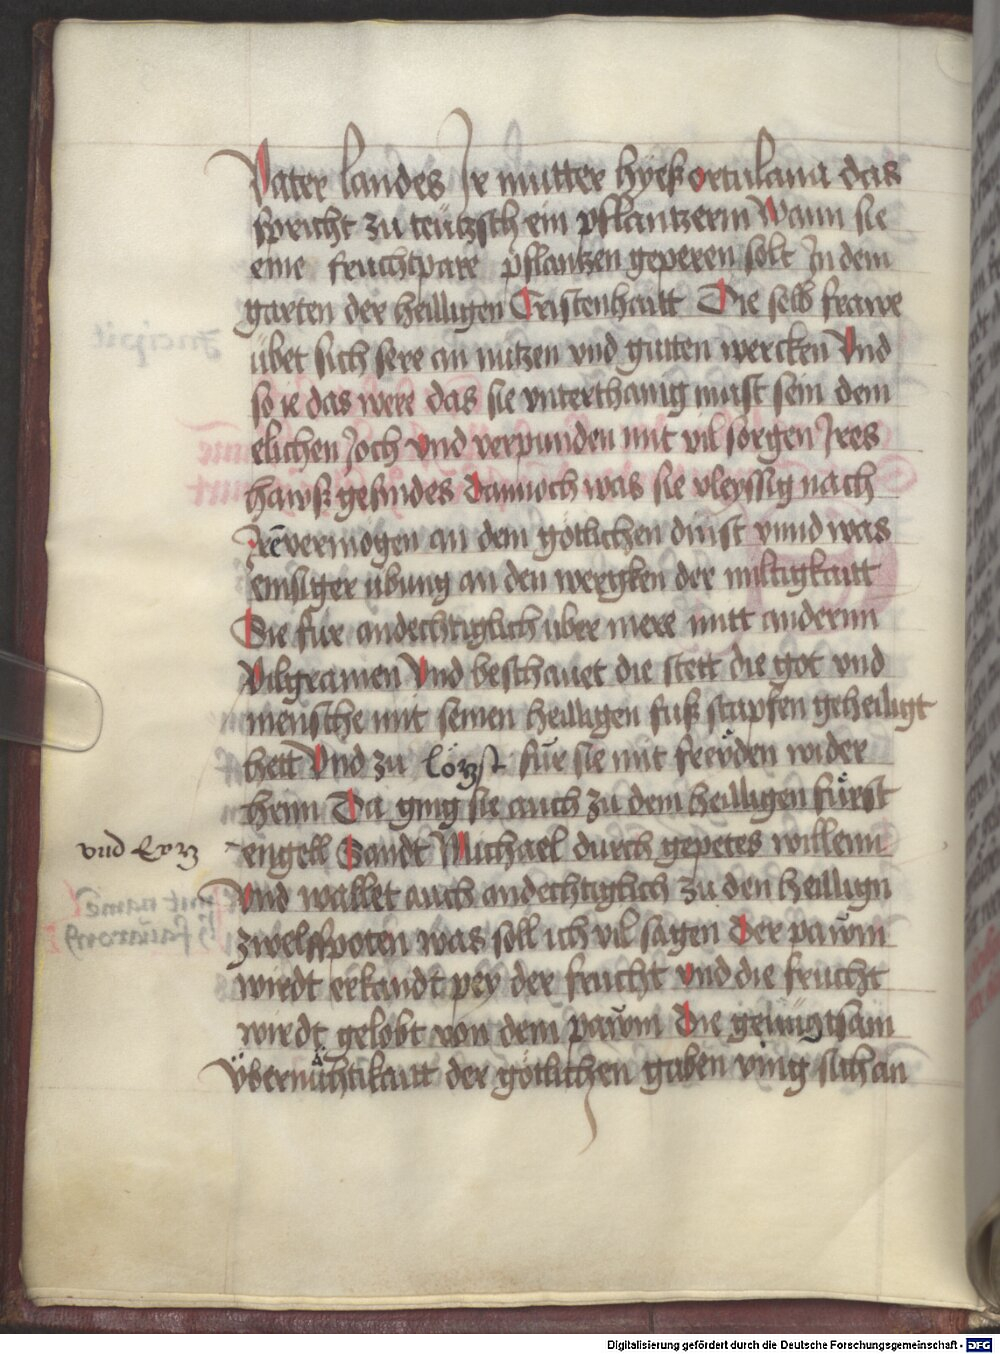 Vater landes Ir mutter hyeß ortulana das
spricht zu teutzsch ein pflantzerin Wann sie
eine fruchtpare pflantzen geperen solt In dem
garten der heilligen Cristenhaitt Die selb frawe
übet sich sere an nutzen vnd gutten wercken Vnd
so ie das were das sie vnterthanig must sein dem
elichen Joch vnd verpunden mit vil sorgen Ires
hawß gesindes Dannoch was sie vleyssig nach
Irē vermögen an dem götlichen dinst vnnd was
emsiger übung an den wergken der miltigkaitt
Sie für andechtiglich uber mere mitt andernn
Pilgramen Vnd beschauet die stett die got vnd
mensche mit seinen heilligen fuß stapfen geheiligt
hett Vnd zu lözst für sie mit freüden wider
heim Da ging sie auch zu dem heilligen fürst
vnd Lorz
engell Sandt Michael durch gepetes willenn
Vnd wallet auch andechtiglich zu den heillign
zwelffpoten was soll ich vil sagen Der paüm
wirdt erkandt pey der frucht vnd die frucht
wirdt gelobt von dem paüm Die genüngtsam
übernüchtikaitt der götlichen gaben ving sich an
Digitalisierung gefördert durch die Deutsche Forschungsgemeinschaft - DFG